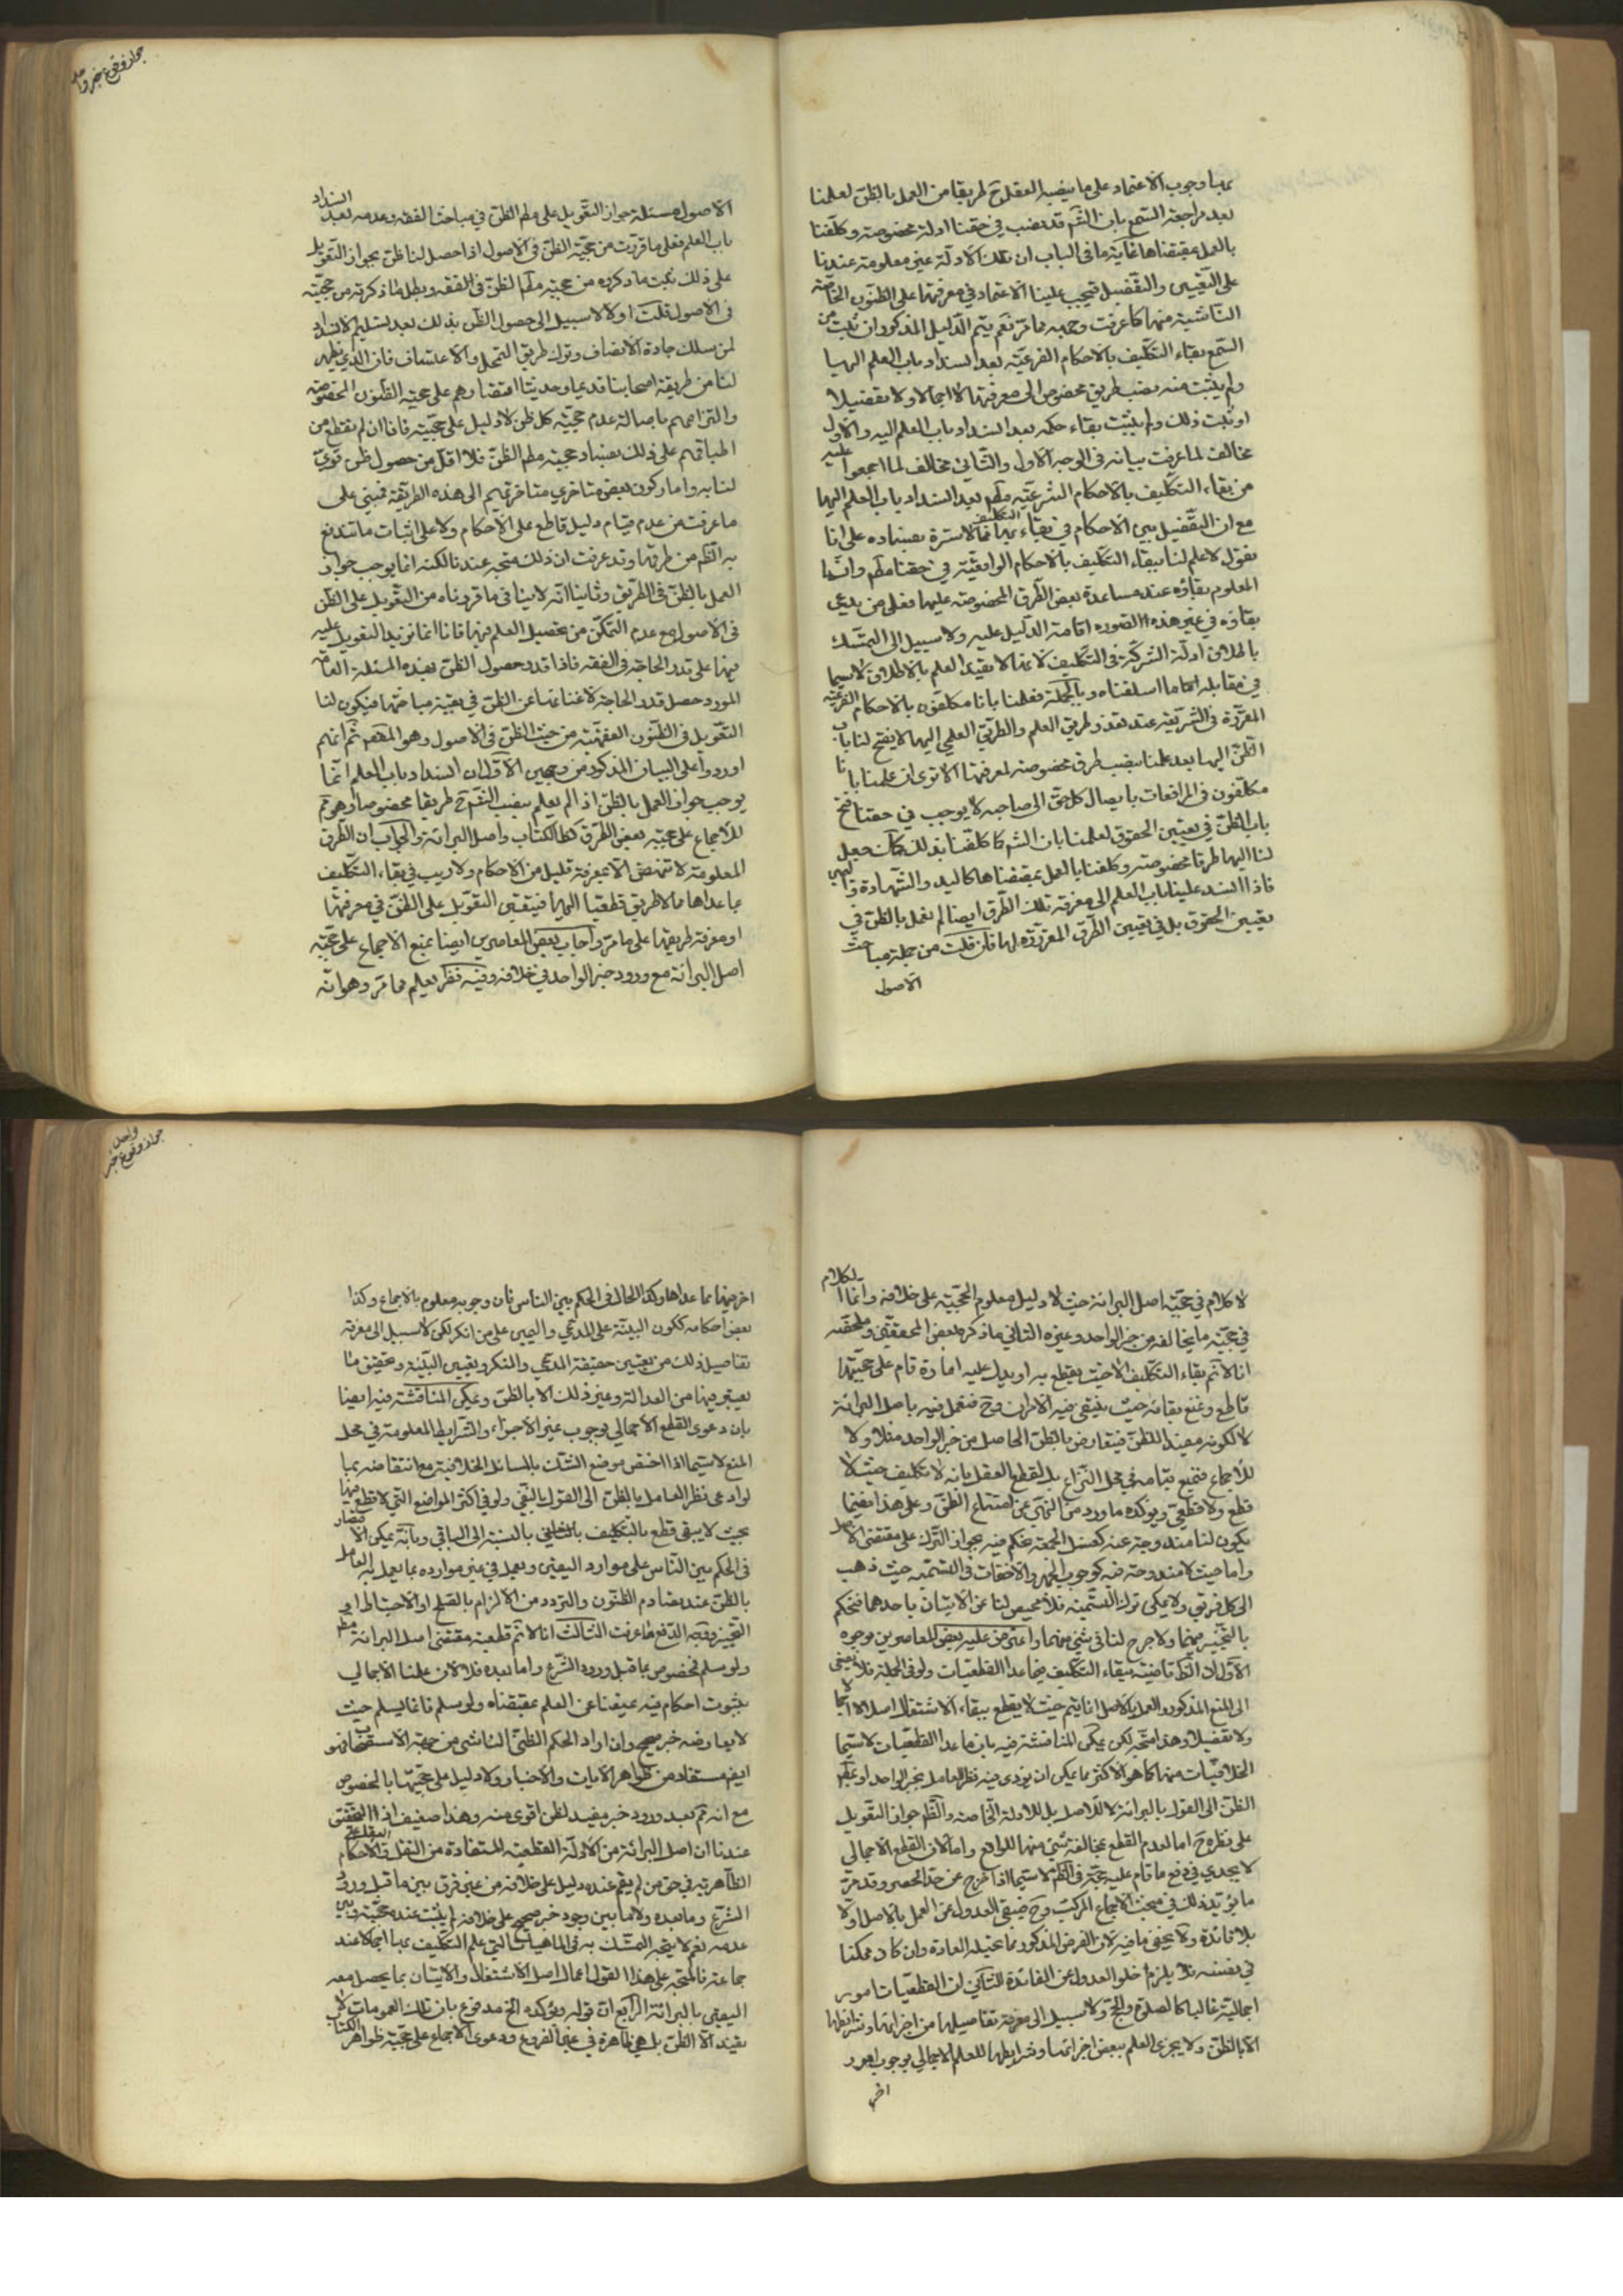 بها وجوب الاعتماد على ما ينصبه العقل ح طريقا من العمل بالظن لعلمنا
بعد مراجعة السمع بان الشم قد نصب في حقنا ادلة مخصوصة وكلفنا
بالعمل بمقتضاها غاية ما في الباب ان تلك الادلة غير معلومة عندنا
على التعيين والتفصيل فيجب علينا الاعتماد في معرفتها على الظنون الخاصة
الناشية منها كما عرفت وجهه مما مر نعم يتم الدليل المذكور ان ثبت من
السمع بقاء التكليف بالاحكام الفرعية بعد انسداد باب العلم اليها
ولم يثبت منه نصب طريق مخصوص الى معرفتها لا اجمالا ولا تفصيلا
او ثبت ذلك ولم يثبت بقاء حكمه بعد انسداد باب العلم اليه والاول
مخالف لما عرفت بيانه في الوجه الاول والثاني مخالف لما اجمعوا عليه
من بقاء التكليف بالاحكام الشرعية مطم بعد انسداد باب العلم اليها
مع ان التفصيل بين الاحكام في بقاء التكليف بها مما لا سترة بفساده على انا
نقول لا علم لنا ببقاء التكليف بالاحكام الواقعية في حقنا مطم وانما
المعلوم بقاؤه عند مساعدة بعض الطرق المخصوصة عليها فعلى من يدعي
بقاؤه في غير هذه الصورة اقامة الدليل عليه ولا سبيل الى التمسك
باطلاق ادلة الشركة في التكليف لانها لا يفيد العلم بالاطلاق لا سيما
في مقابلة ما اسلفناه وبالجملة فعلمنا بانا مكلفون بالاحكام الفرعية
المقررة في الشريعة عند تعذر طريق العلم والطريق العلمي اليها لا يفتح لنا باب
الظن اليها بعد علمنا بنصب طرق مخصوصة لمعرفتها الا ترى ان علمنا بانا
مكلفون في المرافعات بايصال كل حق الى صاحبه لا يوجب في حقنا فتح
باب الظن في تعيين الحقوق لعلمنا بان الشم كما كلفنا بذلك كك جعل
لنا اليها طرقا مخصوصة وكلفنا بالعمل بمقتضاها كاليد والشهادة و اليمين
فاذا انسد علينا باب العلم الى معرفة تلك الطرق ايضا لم نعمل بالظن في
تعيين الحقوق بل في تعيين الطرق المقررة لها فان قلت من جملة مباحث
الاصول
جواز وقوع خبر واحد
الاصول مسئلة جواز التعويل على مطم الظن في مباحث الفقه وعدمه بعد انسداد
باب العلم فعلى ما قررت من حجية الظن في الاصول اذا حصل لنا ظن بجواز التعويل
على ذلك ثبت ما ذكروه من حجية مطم الظن في الفقه وبطل ما ذكرته من حجيته
في الاصول قلت اولا لا سبيل الى حصول الظن بذلك بعد تسليم الانسداد
لمن سلك جادة الانصاف وترك طريق التمحل والاعتساف فان الذي يظهر
لنا من طريقة اصحابنا قديما وحديثا اقتصارهم على حجية الظنون المخصوصة
والتزامهم باصالة عدم حجية كل ظن لا دليل على حجيته فانا ان لم نقطع من
اطباقهم على ذلك بفساد حجية مطم الظن فلا اقل من حصول ظن قوي
لنا به واما ركون بعض متاخري متاخريهم الى هذه الطريقة فمبني على
ما عرفت من عدم قيام دليل قاطع على الاحكام ولا على اثبات ما تندفع
به الظم من طرقها وقد عرفت ان ذلك متجه عندنا لكنه انما يوجب جواز
العمل بالظن في الطريق وثانيا انه لا ينافي ما قررناه من التعويل على الظن
في الاصول مع عدم التمكن من تحصيل العلم فيها فانا انما نريد التعويل عليه
فيها على قدر الحاجة في الفقه فاذا قدر حصول الظن بهذه المسئلة العامة
المورد حصل قدر الحاجة لاغنائها عن الظن في بقية مباحثها فيكون لنا
التعويل في الظنون الفقهية من حيث الظن في الاصول وهو المقصم ثم انهم
اوردوا على البيان المذكور من وجهين الاول ان انسداد باب العلم انما
يوجب جواز العمل بالظن اذا لم يعلم بنصب الشم ح طريقا مخصوصا وهو مم
للاجماع على حجية بعض الطرق كظم الكتاب واصل البرائة والجواب ان الطرق
المعلومة لا تنهض الا بمعرفة قليل من الاحكام ولا ريب في بقاء التكليف
بما عداها مما لا طريق قطعيا اليها فيتعين التعويل على الظن في معرفتها
او معرفة طريقها على ما مر واجاب بعض المعاصرين ايضا بمنع الاجماع على حجية
اصل البرائة مع ورود خبر الواحد في خلافه وفيه نظر يعلم مما مر وهو انه
لا كلام في حجية اصل البرائة حيث لا دليل معلوم الحجية على خلافه وانما الكلام
في حجية ما يخالفه من خبر الواحد وغيره الثاني ما ذكره بعض المحققين وملخصه
انا لا نم بقاء التكليف الا حيث يقطع به او يدل عليه امارة قام على حجيتها
قاطع ونمنع بقائه حيث ينتفي فيه الامران وح فنعمل فيه باصل البرائة
لا لكونه مفيد الظن فيتعارض بالظن الحاصل من خبر الواحد مثلا ولا
للاجماع فيمنع قيامه في محل النزاع بل لقطع العقل بانه لا تكليف حيث لا
قطع ولا قطعي ويوكده ما ورد من النهي عن اتباع الظن وعلى هذا ففيما
يكون لنا مندوحة عنه كغسل الجمعة نحكم فيه بجواز الترك على مقتضى الاصل
واما حيث لا مندوحة فيه كوجوب الجهر والاخفات في التسمية حيث ذهب
الى كل فريق ولا يمكن ترك التسمية فلا محيص لنا عن الاتيان باحدهما فنحكم
بالتخيير فيهما ولا حرج لنا في شيئ منهما واعترض عليه بعض المعاصرين بوجوه
الاول ان الظم قاضية ببقاء التكليف فيما عدا القطعيات ولو في الجملة فلا يصغى
الى المنع المذكور والعمل بالاصل انما يتم حيث لا يقطع ببقاء الاشتغال اصلا لا اجمالا
ولا تفصيلا وهذا متجه لكن يمكن المناقشة فيه بان ما عدا القطعيات لا سيما
الخلافيات منها كما هو الاكثر مما يمكن ان يؤدى فيه نظر العامل بخبر الواحد او بمطم
الظن الى القول بالبرائة لا للاصل بل للادلة الخاصة والظم جواز التعويل
على نظره ح اما لعدم القطع بمخالفة شيئ منها للواقع واما لان القطع الاجمالي
لا يجدي في دفع ما قام عليه حجة في الظم لا سيما اذا خرج عن حد الحصر وقد مر
ما يؤيد ذلك في مبحث الاجماع المركب وح فيبقى العدول عن العمل بالاصل اولا
بلا فائدة ولا يخفى ما فيه لان الفرض المذكور مما تحيله العادة وان كان ممكنا
في نفسه فلا يلزم خلو العدول عن الفائدة الثاني ان القطعيات امور
اجمالية غالبا كالصلوة والحج ولا سبيل الى معرفة تفاصيلها من اجزائها وشرائطها
الا بالظن ولا يجدى العلم ببعض اجزائها وشرايطها للعلم الاجمالي بوجوب امور
اخر
جواز وقوع خبر واحد
اخر فيها مما عداها وكذا الحال في الحكم بين الناس فان وجوبه معلوم بالاجماع وكذا
بعض احكامه ككون البينة على المدعي واليمين على من انكر لكن لا سبيل الى معرفة
تفاصيل ذلك من تعيين حقيقة المدعي والمنكر وتعيين البينة وتحقيق ما
يعتبر فيها من العدالة وغير ذلك الا بالظن ويمكن المناقشة فيه ايضا
بان دعوى القطع الاجمالي بوجوب غير الاجزاء والشرايط المعلومة في محل
المنع لا سيما اذا اختص موضع الشك بالمسائل الخلافية مع انتقاضه بما
لو ادى نظر العامل بالظن الى القول بالنفي ولو في اكثر المواضع التي لا قطع فيها
بحيث لا يبقى قطع بالتكليف بالنسبة الى الباقي وبانه يمكن الاقتصار
في الحكم بين الناس على موارد اليقين ويعمل في غير موارده بما يعمل به العامل
بالظن عند تصادم الظنون والتردد من الالزام بالصلح او الاحتياط او
التخيير ووجه الدفع ما عرفت الثالث انا لا نم قطعية مقتضى اصل البرائة مطم
ولو سلم فمخصوص بما قبل ورود الشرع واما بعده فلا لان علمنا الاجمالي
بثبوت احكام فيه يمنعنا عن العلم بمقتضاه ولو سلم فانما يسلم حيث
لا يعارضه خبر صحيح وان اراد الحكم الظني الناشي من جهة الاستصحاب فهو
ايضم مستفاد من ظواهر الايات والاخبار ولا دليل على حجيتها بالخصوص
مع انه مم بعد ورود خبر مفيد لظن اقوى منه وهذا ضعيف اذ التحقيق
عندنا ان اصل البرائة من الادلة القطعية المستفادة من العقل والنقل في الاحكام
الظاهرية في حق من لم يقم عنده دليل على خلافه من غير فرق بين ما قبل ورود
الشرع وما بعده ولا ما بين وجود خبر صحيح على خلافه لم يثبت عنده حجيته وبين
عدمه نعم لا يتجه التمسك به في الماهيات التي علم التكليف بها اجمالا عند
جماعة فالمتجه على هذا القول اعمال اصل الاشتغال والاتيان بما يحصل معه
اليقين بالبرائة الرابع ان قوله ويؤكده الخ مدفوع بان تلك العمومات لا
تفيد الا الظن بل هي ظاهرة في غير الفروع ودعوى الاجماع على حجية ظواهر الكتاب